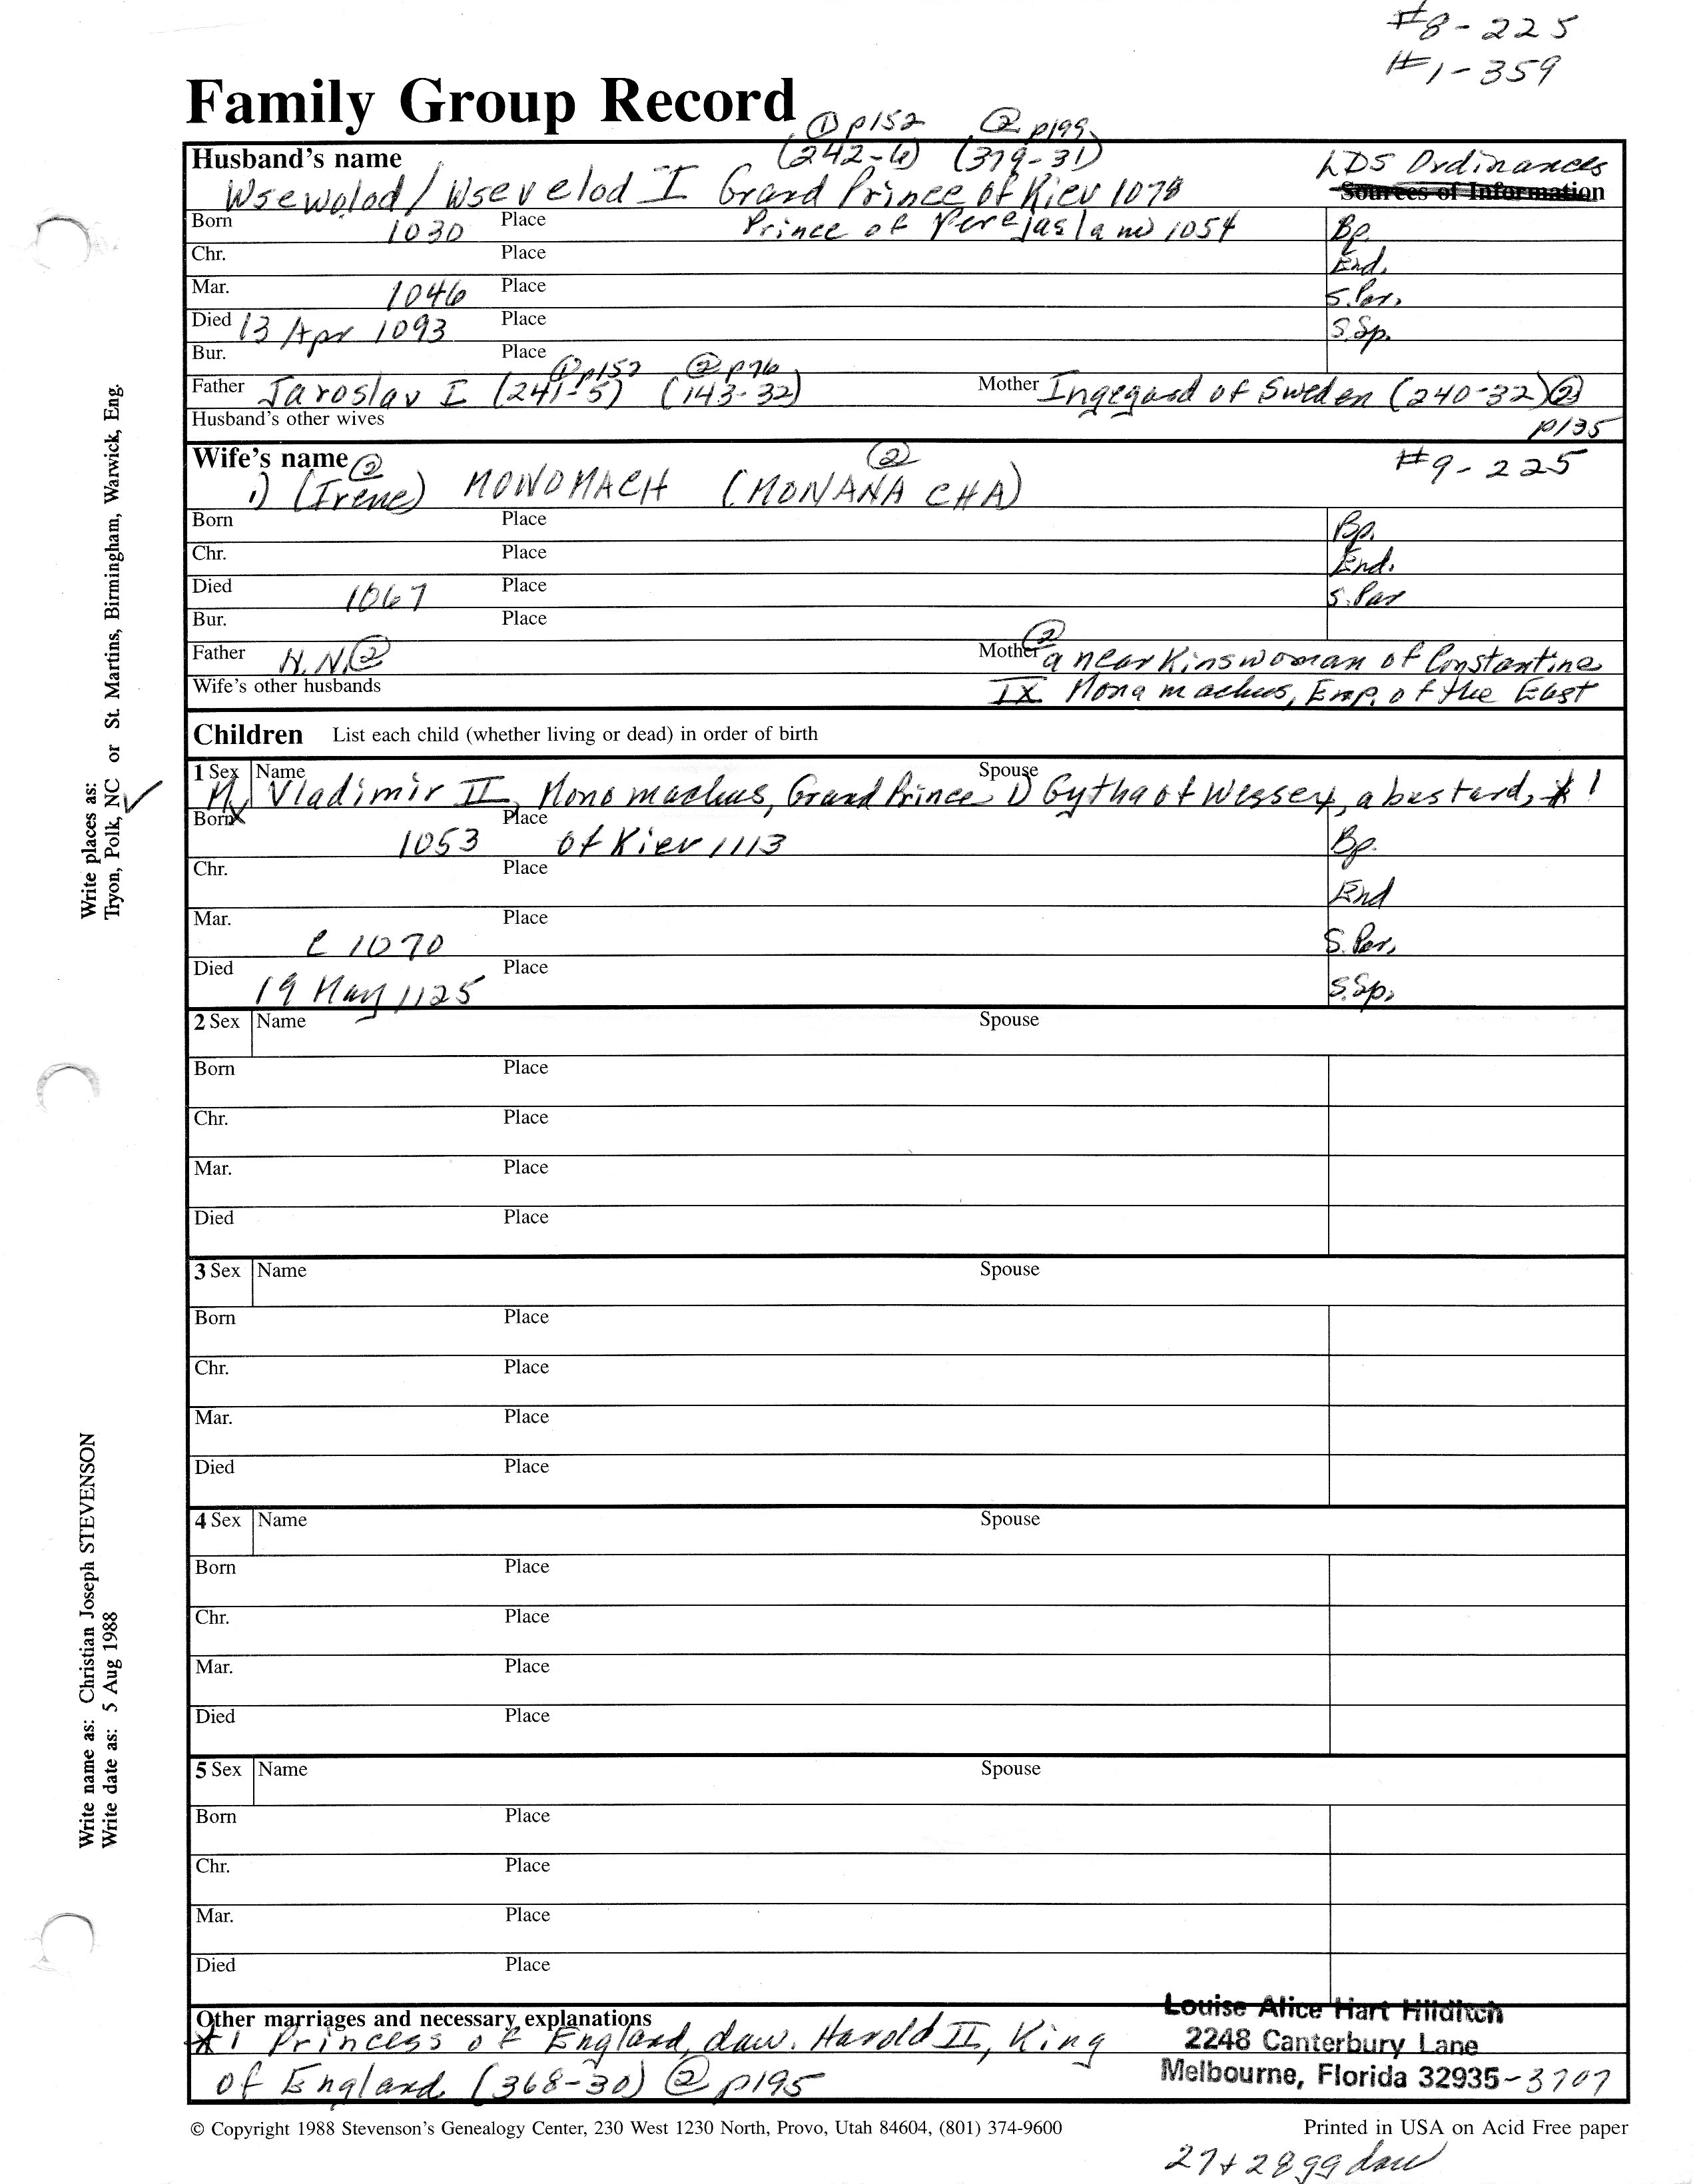 #8-225
#1-359
Family Group Record
① p152 ② p199
Husband's name (242-6) (379-31) LDS Ordinances
Sources of Information
Wsewolod/Wsevelod I Grand Prince of Kiev 1078
Born 1030 Place Prince of Perejaslaw 1054 Bp.
Chr. Place End.
Mar. 1046 Place S.Par.
Died 13 Apr 1093 Place S.Sp.
Bur. Place
① p152 ② p76
Father Jaroslav I (241-5) (143-32) Mother Ingegard of Sweden (240-32) ②
Husband's other wives p135
Wife's name ② ② #9-225
1) (Irene) MONOMACH (MONANA CHA)
Born Place Bp.
Chr. Place End.
Died 1067 Place S.Par
Bur. Place
Father N.N. ② Mother ② a near Kinswoman of Constantine
Wife's other husbands IX Monamachus, Emp. of the East
Children List each child (whether living or dead) in order of birth
1 Sex Name Spouse
M Vladimir II, Monomachus, Grand Prince 1) Gytha of Wessex, a bastard, *1
Born X 1053 Place of Kiev 1113 Bp.
Chr. Place End
Mar. C 1070 Place S.Par.
Died 19 May 1125 Place S.Sp.
2 Sex Name Spouse
Born Place
Chr. Place
Mar. Place
Died Place
3 Sex Name Spouse
Born Place
Chr. Place
Mar. Place
Died Place
4 Sex Name Spouse
Born Place
Chr. Place
Mar. Place
Died Place
5 Sex Name Spouse
Born Place
Chr. Place
Mar. Place
Died Place
Other marriages and necessary explanations
*1 Princess of England, dau. Harold II, King
of England (368-30) ② p195
Louise Alice Hart Hilditch
2248 Canterbury Lane
Melbourne, Florida 32935-3707
© Copyright 1988 Stevenson's Genealogy Center, 230 West 1230 North, Provo, Utah 84604, (801) 374-9600 Printed in USA on Acid Free paper
27+28 gg dau
Write places as:
Tryon, Polk, NC or St. Martins, Birmingham, Warwick, Eng.
Write name as: Christian Joseph STEVENSON
Write date as: 5 Aug 1988